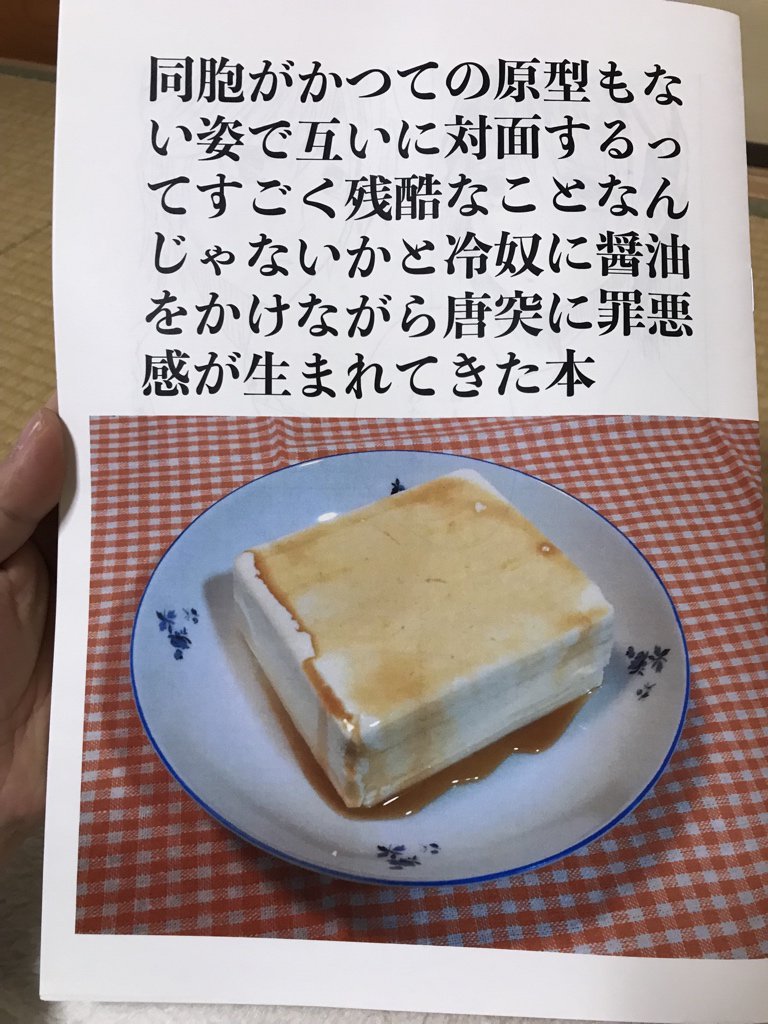 同胞がかつての原型もな
い姿で互いに対面するっ
てすごく残酷なことなん
じゃないかと冷奴に醤油
をかけながら唐突に罪悪
感が生まれてきた本